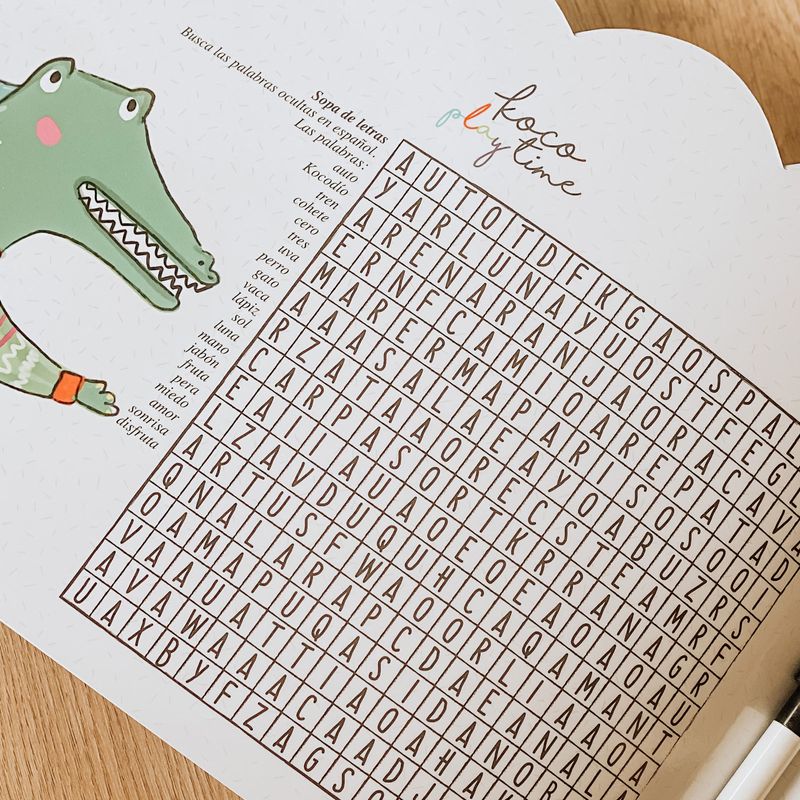 koco
play time
Sopa de letras
Busca las palabras ocultas en español.
Las palabras:
auto
Kocodío
tren
cohete
cero
tres
uva
perro
gato
vaca
lápiz
sol
luna
mano
jabón
fruta
pera
miedo
amor
sonrisa
disfruta
A U T O T D F K G A O S P A L
Y A R L U N A Y U O S T F E G L
A R E N A R A N J A O R A C A V A
E R N F C A M I O A R E P A T A D
M A R E R M A P A R I S O S O O I
A A A S A L A E A Y O A B U Z R S
R Z A T A A O R E C S T E A M R F
C A R P A S O R T K R R A N A G R
E A I I A U A O E O E A O A O A U
L Z A V D U Q U H C A Q A M A N T
A R T U S F W A O O R L I A A O A
Q N A L A R A P C D A E A N A L A
O A M A P U Q A S I D A N O R
V A A U A T T I A O A H A K
A V A W A A A C A A D J
U A X B Y F Z A G S O